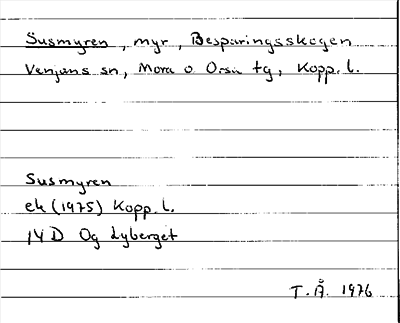 Susmyren, myr, Besparingsskogen
Venjans sn, Mora o Orsa tg, Kopp. l.
Susmyren
ek (1975) Kopp. l.
14D Og Lyberget
T.Å. 1976